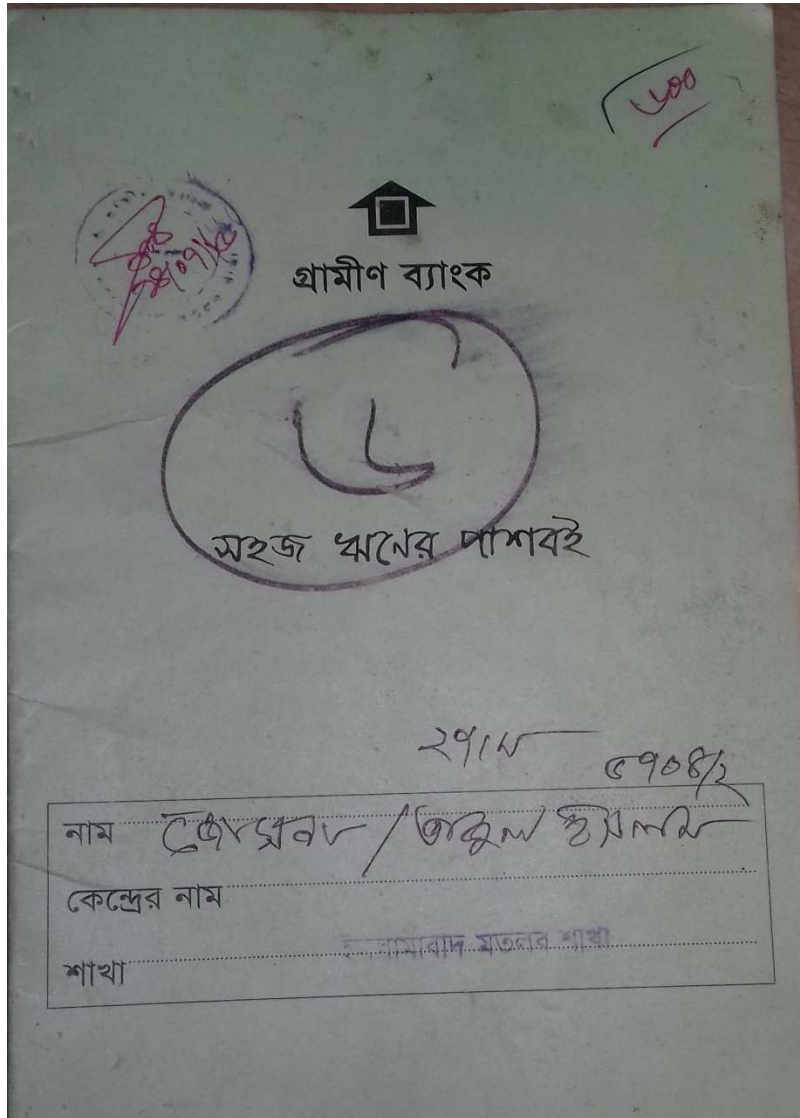 ৬০০
গ্রামীণ ব্যাংক
৬
সহজ ঋনের পাশবই
২৭/ম
৫৭০৪/২
নাম জোসনা / তাজুল ইসলাম
কেন্দ্রের নাম
শাখা ইসলামাবাদ মতলব শাখা